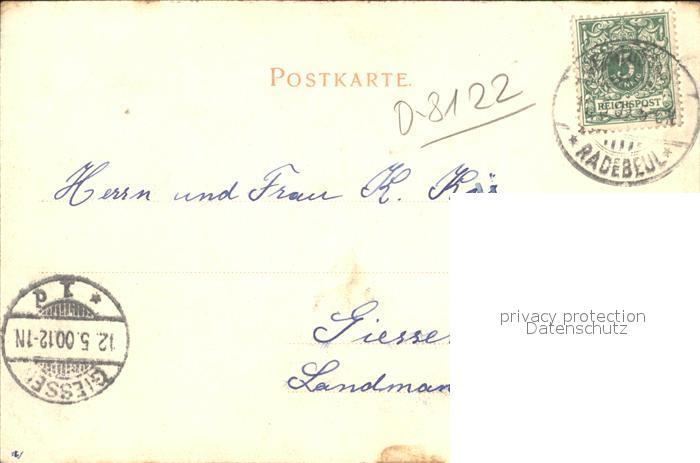 POSTKARTE.
D-8122
5
REICHSPOST
* RADEBEUL *
Herrn und Frau K.
12.5.0012-1N
GIESSE
Giesse
Landman
privacy protection
Datenschutz